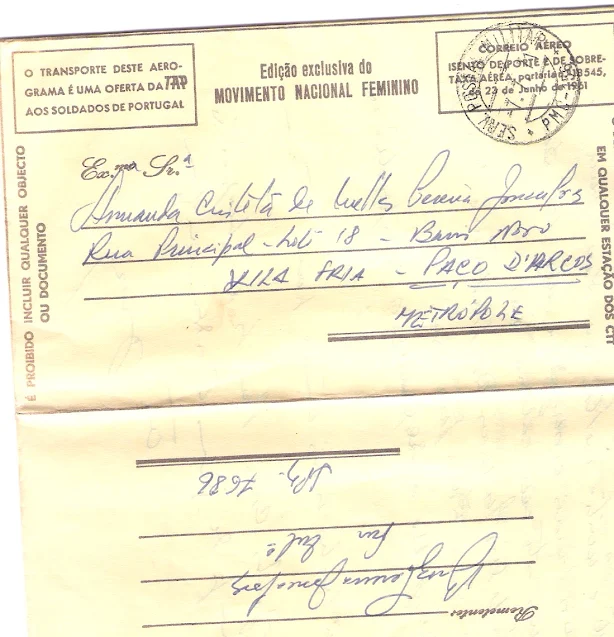 O TRANSPORTE DESTE AERO-
GRAMA É UMA OFERTA DA TAP
AOS SOLDADOS DE PORTUGAL
Edição exclusiva do
MOVIMENTO NACIONAL FEMININO
CORREIO AÉREO
ISENTO DE PORTE E DE SOBRE-
TAXA AÉREA, portaria 18545,
de 23 de Junho de 1961
SERV. POSTAL MILITAR
É PROIBIDO INCLUIR QUALQUER OBJECTO
OU DOCUMENTO
EM QUALQUER ESTAÇÃO DOS CTT
Ex.ma Sr.a
Armanda de Pereira Gonçalves
Rua Principal - Lote 18 - Bairro Novo
VILA FRIA - PAÇO D'ARCOS
METRÓPOLE
Remetente:
Gonçalves
SPM. 7686